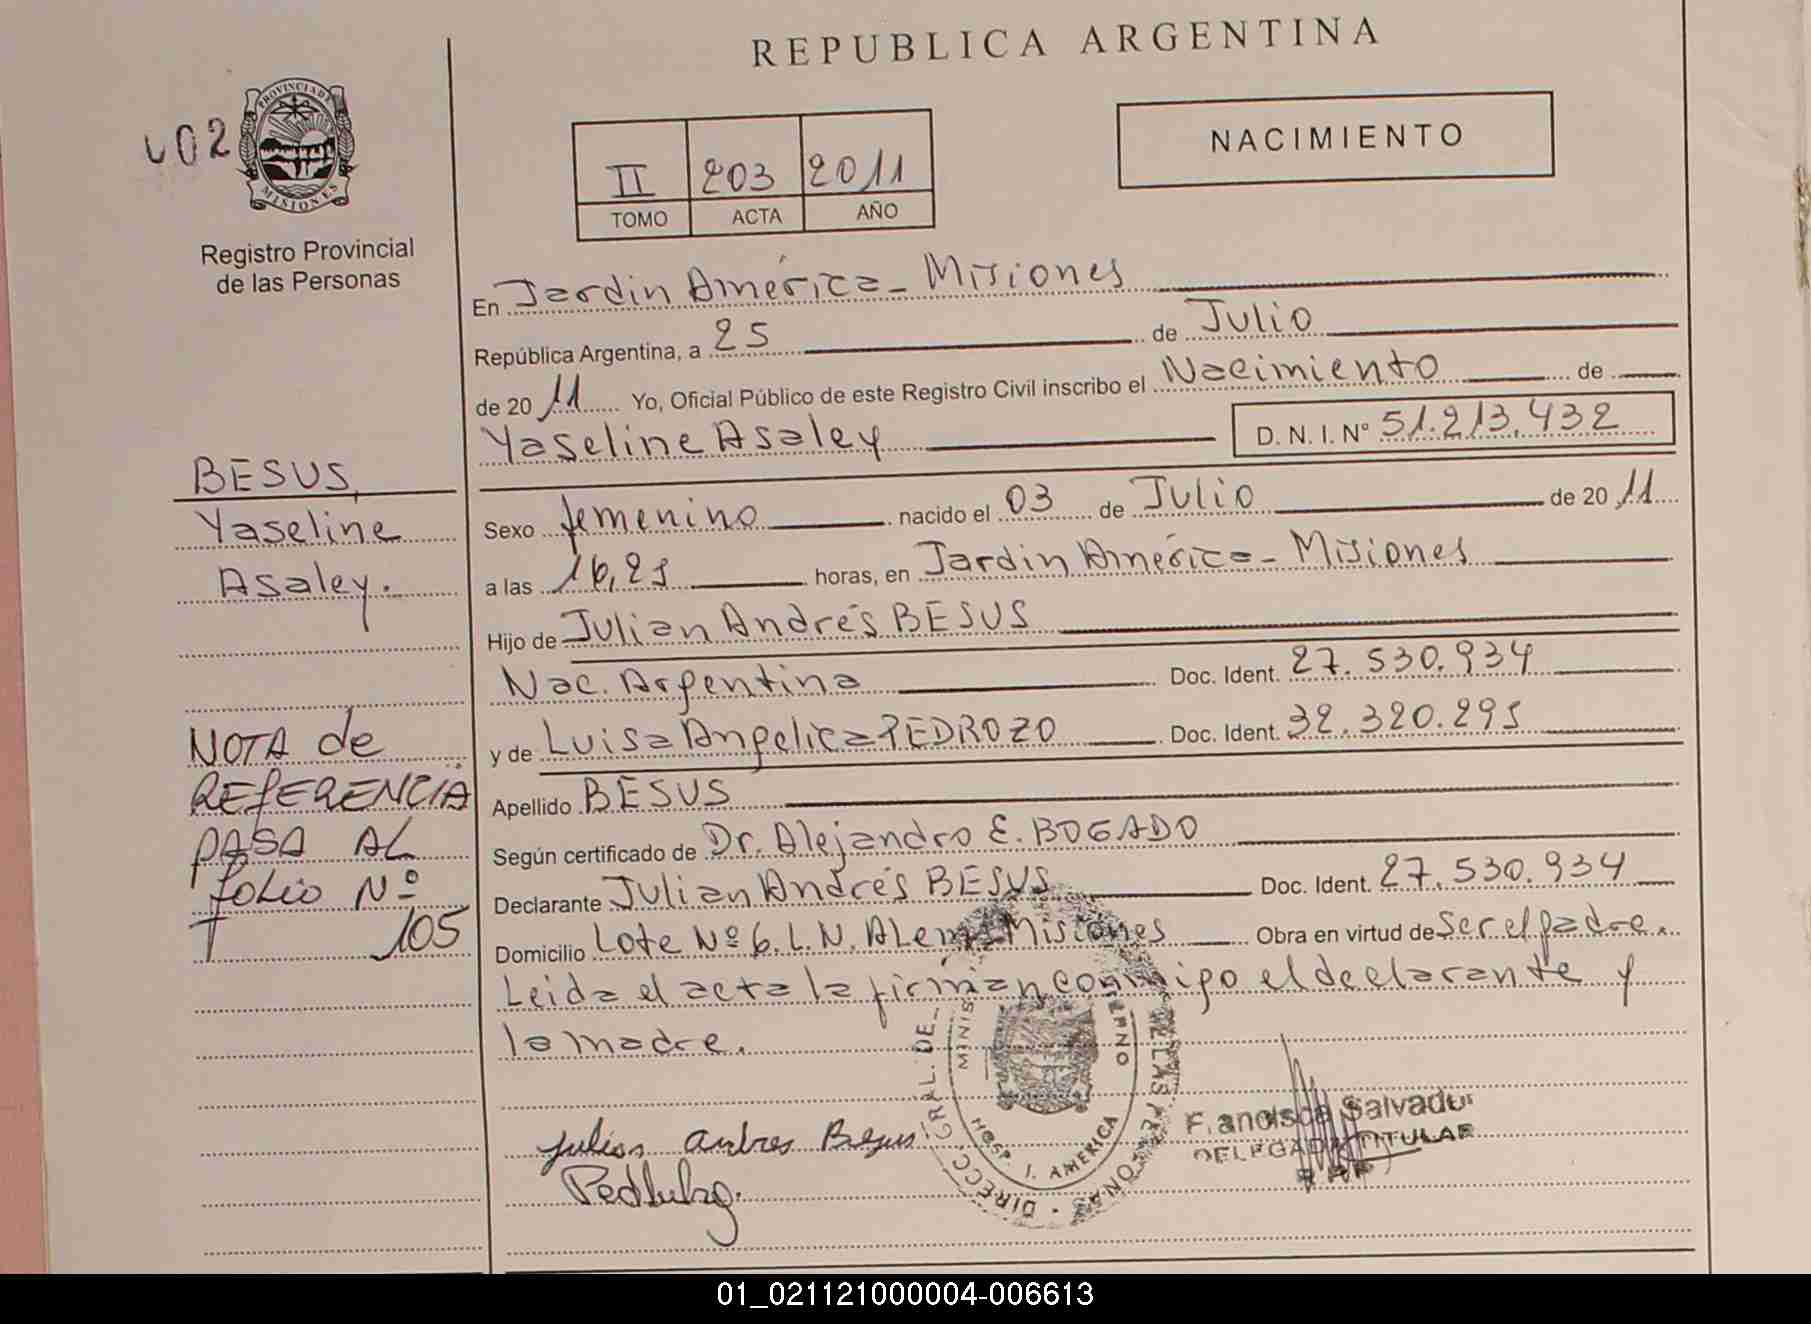 REPUBLICA ARGENTINA
002
PROVINCIA DE
MISIONES
Registro Provincial
de las Personas
II 203 2011
TOMO ACTA AÑO
NACIMIENTO
En Jardin América - Misiones
República Argentina, a 25 de Julio
de 20 11 Yo, Oficial Público de este Registro Civil inscribo el Nacimiento de
Yaseline Asaley D. N. I. Nº 51.213.432
BESUS,
Yaseline
Asaley.
Sexo femenino nacido el 03 de Julio de 20 11
a las 16,25 horas, en Jardin América - Misiones
Hijo de Julian Andrés BESUS
Nac. Argentina Doc. Ident. 27.530.934
y de Luisa Angelica PEDROZO Doc. Ident. 32.320.295
Apellido BESUS
Según certificado de Dr. Alejandro E. BOGADO
Declarante Julian Andrés BESUS Doc. Ident. 27.530.934
Domicilio Lote Nº 6. L. N. ALem - Misiones Obra en virtud de Ser el padre.
Leida el acta la firman conmigo el declarante y
la madre.
NOTA de
REFERENCIA
PASA AL
folio Nº
T 105
Julian andres Besus
DIRECC. GRAL. DE
MINIS
HOSP. J. AMERICA
Francisca Salvador
DELEGADA TITULAR
01_021121000004-006613